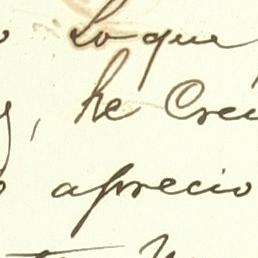 Lo que
, he Cre
aprecio